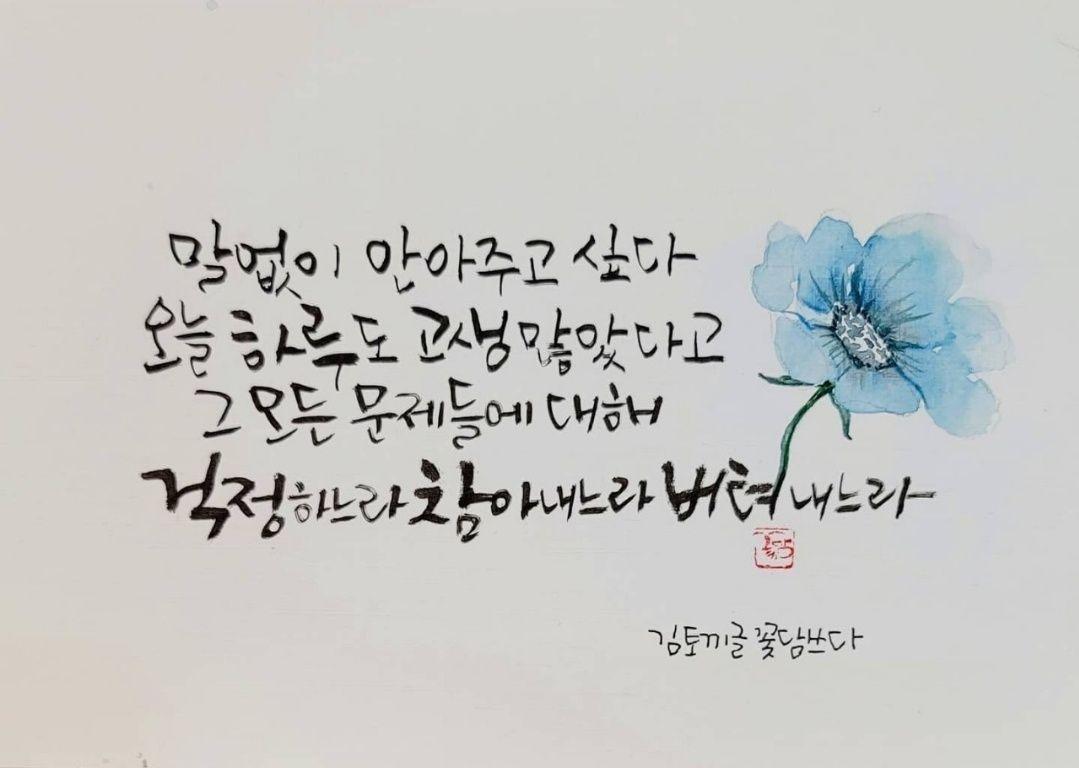 말없이 안아주고 싶다
오늘 하루도 고생 많았다고
그 모든 문제들에 대해
걱정하느라 참아내느라 버텨내느라
꽃담
김토끼글 꽃담쓰다